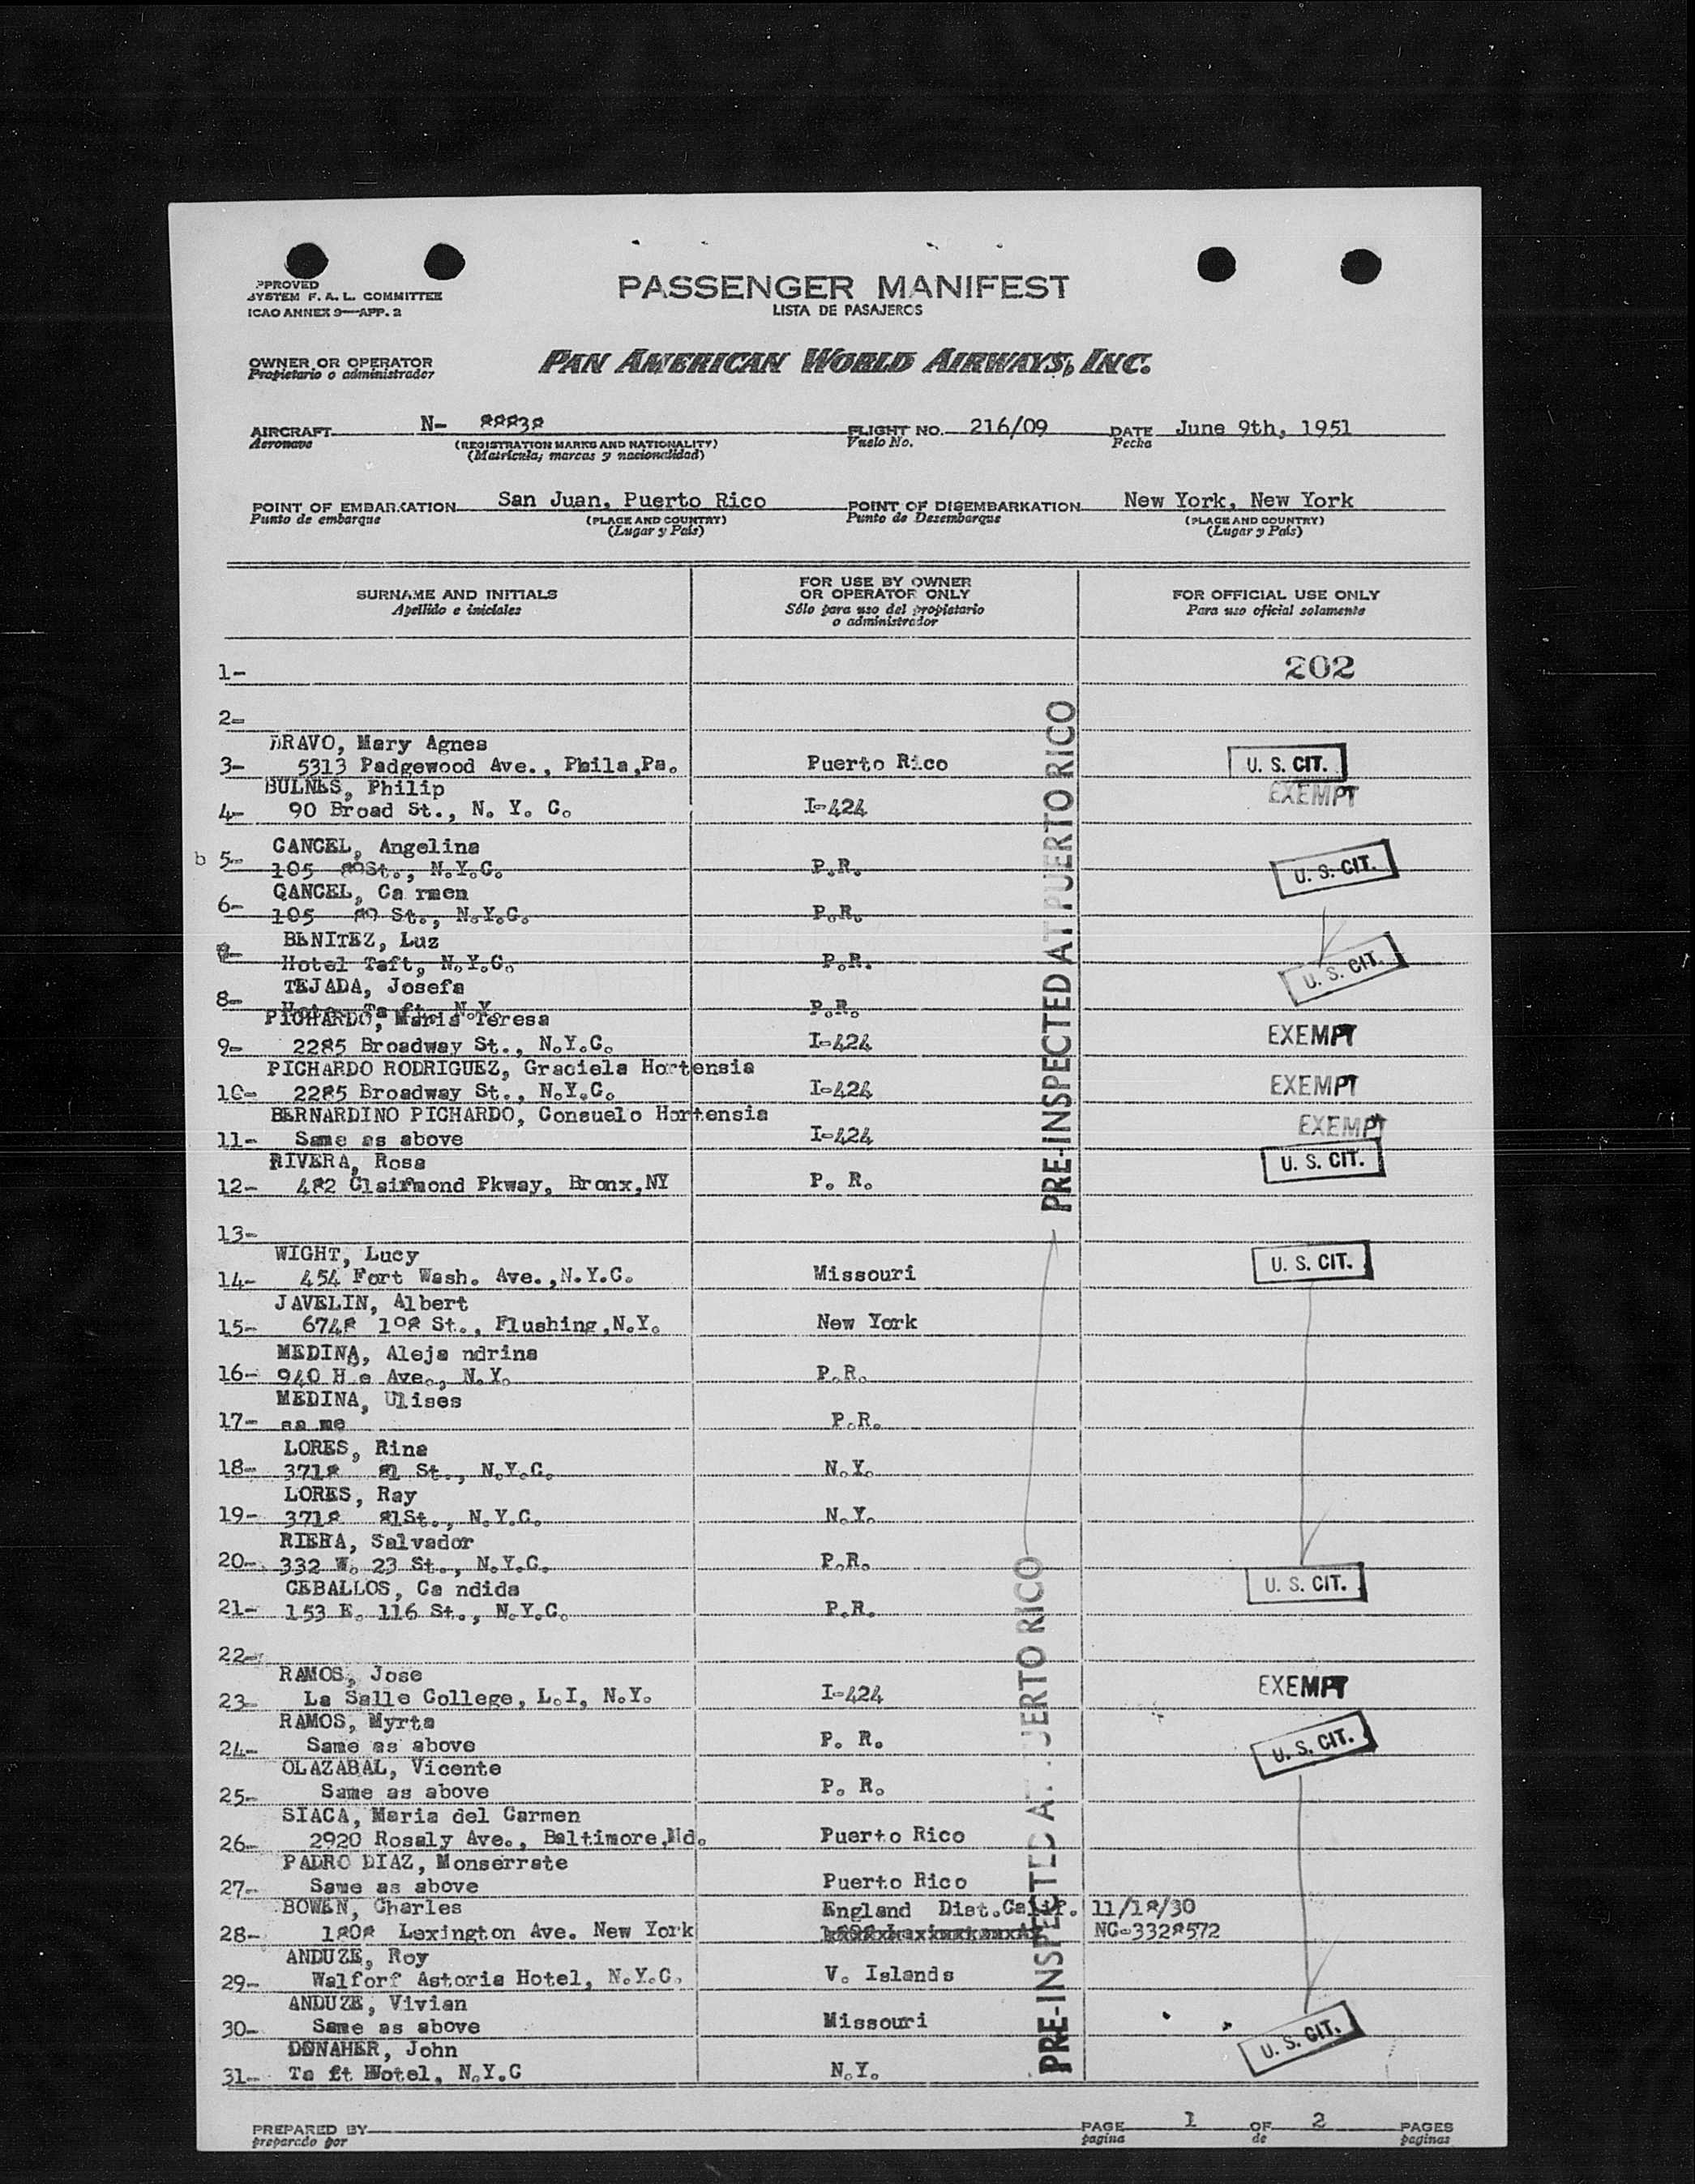 APPROVED
SYSTEM F. A. L. COMMITTEE
ICAO ANNEX 9—APP. 2
PASSENGER MANIFEST
LISTA DE PASAJEROS
OWNER OR OPERATOR
Propietario o administrador
PAN AMERICAN WORLD AIRWAYS, INC.
AIRCRAFT N- 88838 FLIGHT NO. 216/09 DATE June 9th, 1951
Aeronave (REGISTRATION MARKS AND NATIONALITY) Vuelo No. Fecha
(Matrícula; marcas y nacionalidad)
POINT OF EMBARKATION San Juan, Puerto Rico POINT OF DISEMBARKATION New York, New York
Punto de embarque (PLACE AND COUNTRY) Punto de Desembarque (PLACE AND COUNTRY)
(Lugar y País) (Lugar y País)
SURNAME AND INITIALS FOR USE BY OWNER OR OPERATOR ONLY FOR OFFICIAL USE ONLY
Apellido e iniciales Sólo para uso del propietario o administrador Para uso oficial solamente
1- 202
2-
BRAVO, Mary Agnes
3- 5313 Padgewood Ave., Phila,Pa. Puerto Rico U. S. CIT.
BULNES, Philip EXEMPT
4- 90 Broad St., N. Y. C. I-424
CANCEL, Angelina
b 5- 105 80St., N.Y.C. P.R. U. S. CIT.
CANCEL, Ca rmen
6- 105 80 St., N.Y.C. P.R.
BENITEZ, Luz
Hotel Taft, N.Y.C. P.R. U. S. CIT.
TEJADA, Josefa
8- Hote Ta ft, N.Y. P.R.
PICHARDO, Maria Teresa
9- 2285 Broadway St., N.Y.C. I-424 EXEMPT
PICHARDO RODRIGUEZ, Graciela Hortensia
10- 2285 Broadway St., N.Y.C. I-424 EXEMPT
BERNARDINO PICHARDO, Consuelo Hortensia
11- Same as above I-424 EXEMPT
RIVERA, Rosa
12- 482 Clairmond Pkway, Bronx,NY P. R. U. S. CIT.
13-
WIGHT, Lucy
14- 454 Fort Wash. Ave.,N.Y.C. Missouri U. S. CIT.
JAVELIN, Albert
15- 6748 108 St., Flushing,N.Y. New York
MEDINA, Aleja ndrina
16- 940 H e Ave., N.Y. P.R.
MEDINA, Ulises
17- sa me P.R.
LORES, Rina
18- 3718 81 St., N.Y.C. N.Y.
LORES, Ray
19- 3718 81St., N.Y.C. N.Y.
RIERA, Salvador
20- 332 W. 23 St., N.Y.C. P.R.
CEBALLOS, Ca ndida
21- 153 E. 116 St., N.Y.C. P.R. U. S. CIT.
22-
RAMOS, Jose
23- La Salle College, L.I, N.Y. I-424 EXEMPT
RAMOS, Myrta
24- Same as above P. R. U. S. CIT.
OLAZABAL, Vicente
25- Same as above P. R.
SIACA, Maria del Carmen
26- 2920 Rosaly Ave., Baltimore,Md. Puerto Rico
PADRO DIAZ, Monserrate
27- Same as above Puerto Rico
BOWEN, Charles England Dist.Calif. 11/18/30
28- 1808 Lexington Ave. New York NC-3328572
ANDUZE, Roy
29- Walforf Astoria Hotel, N.Y.C. V. Islands
ANDUZE, Vivian
30- Same as above Missouri
DONAHER, John
31- Ta ft Hotel, N.Y.C N.Y. U. S. CIT.
PRE-INSPECTED AT PUERTO RICO
PRE-INSPECTED AT PUERTO RICO
PREPARED BY PAGE 1 OF 2 PAGES
preparado por pagina de paginas